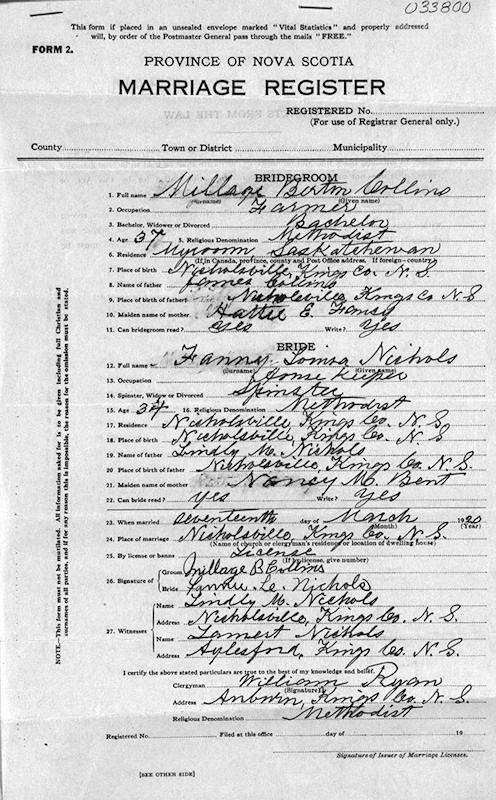 033800
This form if placed in an unsealed envelope marked "Vital Statistics" and properly addressed
will, by order of the Postmaster General pass through the mails "FREE."
FORM 2.
PROVINCE OF NOVA SCOTIA
MARRIAGE REGISTER
REGISTERED No.
(For use of Registrar General only.)
County Town or District Municipality
BRIDEGROOM
1. Full name Millage Berton Collins
(Surname) (Given name)
2. Occupation Farmer
3. Bachelor, Widower or Divorced Bachelor
4. Age 37 5. Religious Denomination Methodist
6. Residence Saskatchewan
(If in Canada, province, county and Post Office address. If foreign—country)
7. Place of birth Nicholsville, Kings Co. N. S.
8. Name of father James Collins
9. Place of birth of father Nicholsville, Kings Co N. S
10. Maiden name of mother Hattie E.
11. Can bridegroom read? Yes Write? Yes
BRIDE
12. Full name Fanny Louisa Nichols
(Surname) (Given name)
13. Occupation House Keeper
14. Spinster, Widow or Divorced Spinster
15. Age 34 16. Religious Denomination Methodist
17. Residence Nicholsville, Kings Co. N. S.
18. Place of birth Nicholsville, Kings Co. N. S
19. Name of father Lindly M. Nichols
20. Place of birth of father Nicholsville, Kings Co. N. S.
21. Maiden name of mother Nancy M. Bent
22. Can bride read? Yes Write? Yes
23. When married seventeenth day of March 1920
(Month) (Year)
24. Place of marriage Nicholsville, Kings Co. N. S.
(Name of church or clergyman's residence or location of dwelling house)
25. By license or banns License
(If by license, give number)
26. Signature of Groom Millage B Collins
Fannie Le. Nichols
27. Witnesses Name Lindly M. Nichols
Address Nicholsville, Kings Co. N. S.
Name Lamert Nichols
Address Aylesford, Kings Co. N. S.
I certify the above stated particulars are true to the best of my knowledge and belief.
Clergyman William Ryan
(Signature)
Address Kings Co. N. S.
Religious Denomination Methodist
Registered No. Filed at this office day of 19
Signature of Issuer of Marriage Licenses.
[SEE OTHER SIDE]
NOTE.—This form must not be mutilated. All information asked for is to be given including full Christian and
surnames of all parties, and if for any reason this is impossible, the reason for the omission must be stated.